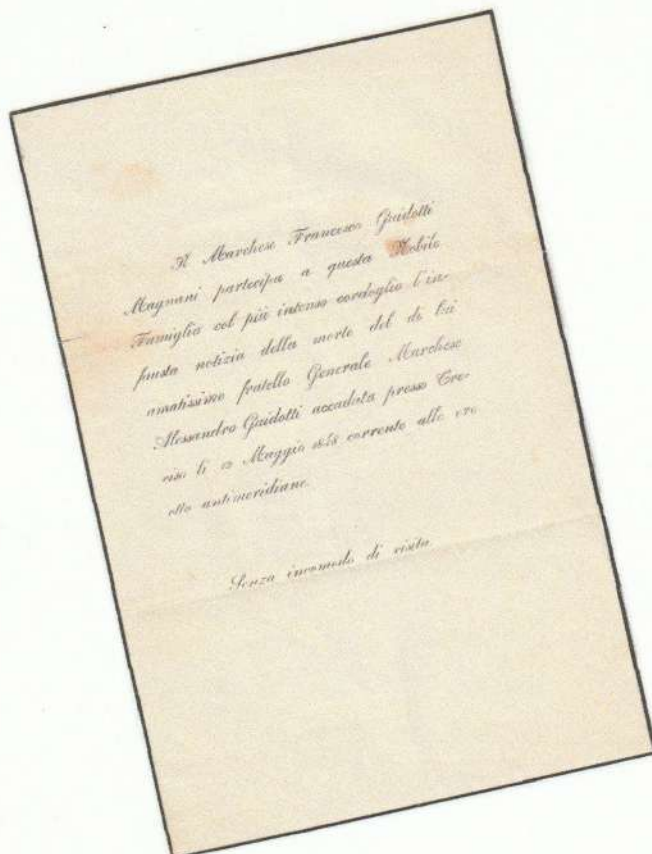 Il Marchese Francesco Guidotti
Magnani partecipa a questa Nobile
Famiglia col più intenso cordoglio l'in-
fausta notizia della morte del di lui
amatissimo fratello Generale Marchese
Alessandro Guidotti accaduta presso Tre-
viso li 12 Maggio 1848 corrente alle ore
otto antimeridiane.
Senza incomodo di visita